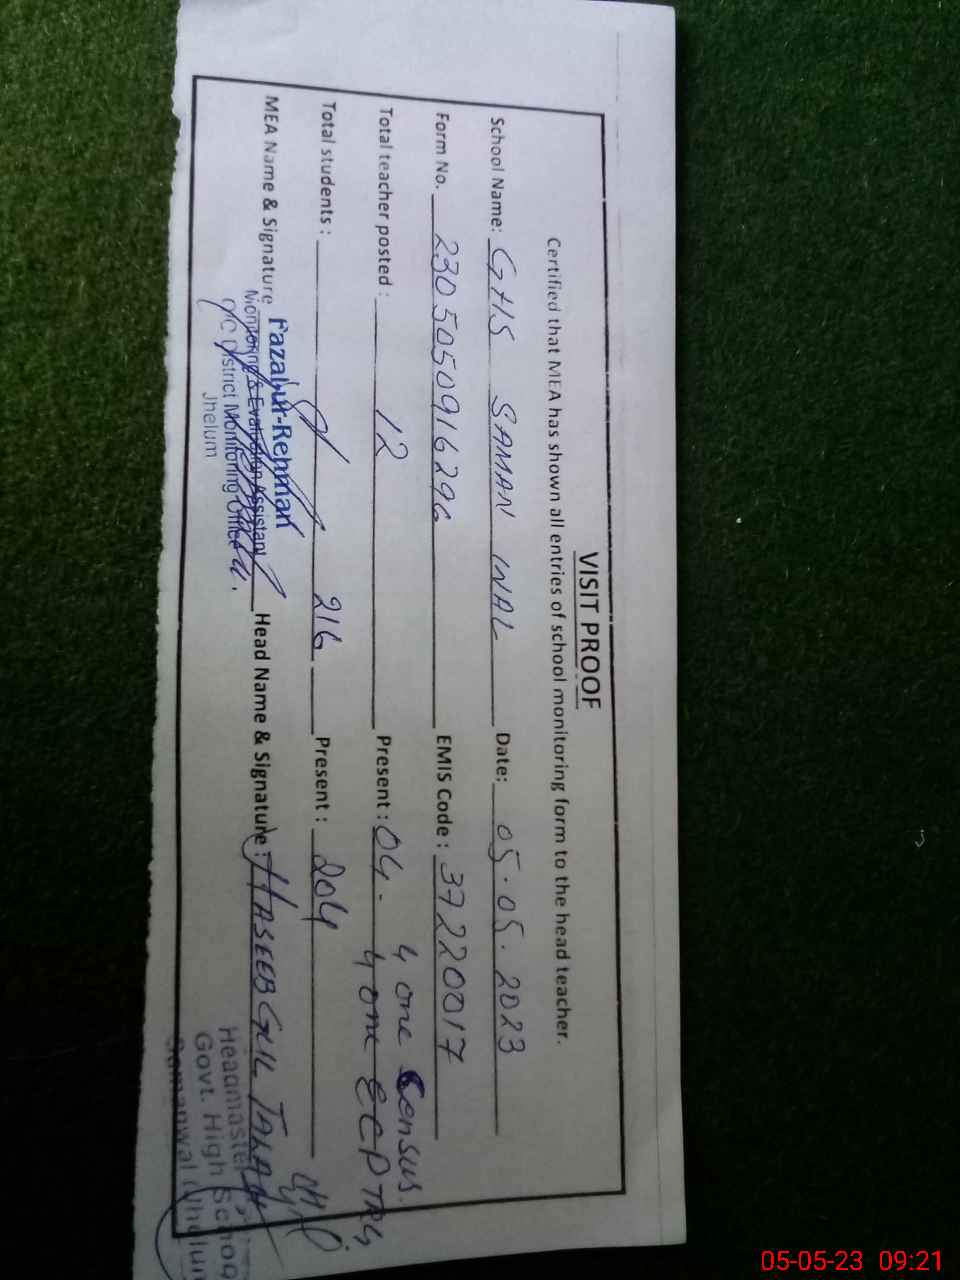 VISIT PROOF
Certified that MEA has shown all entries of school monitoring form to the head teacher.
School Name: GHS SAMAN WAL Date: 05.05.2023
Form No. 230505091629 EMIS Code: 37220017
4 one Census.
Total teacher posted: 12 Present: 04 - 4 one ECP TRG
Total students: 216 Present: 204
MEA Name & Signature Fazal-ur-Rehman Head Name & Signature: HASEEB GUL
Monitoring & Evaluation Assistant
District Monitoring Office
Jhelum
Headmaster
Govt. High School
Samanwal (Jhelum
05-05-23 09:21